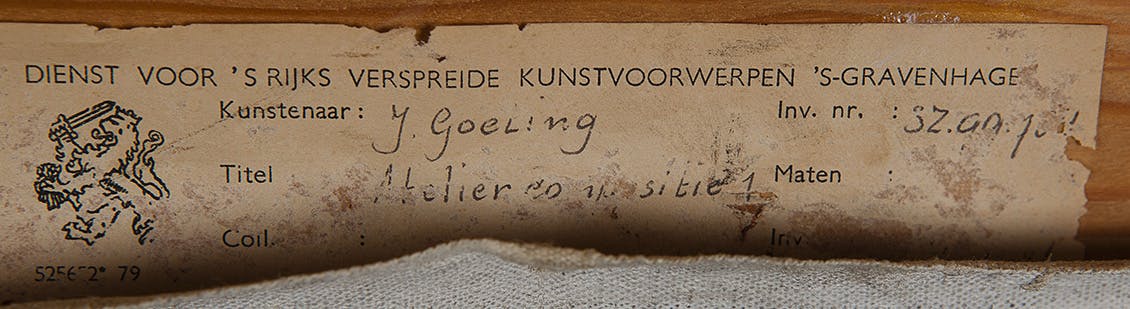 DIENST VOOR 'S RIJKS VERSPREIDE KUNSTVOORWERPEN 'S-GRAVENHAGE
Kunstenaar: J. Goeling Inv. nr. : SZ.an.
Titel Atelier 1 Maten :
Coll. : Inv
79